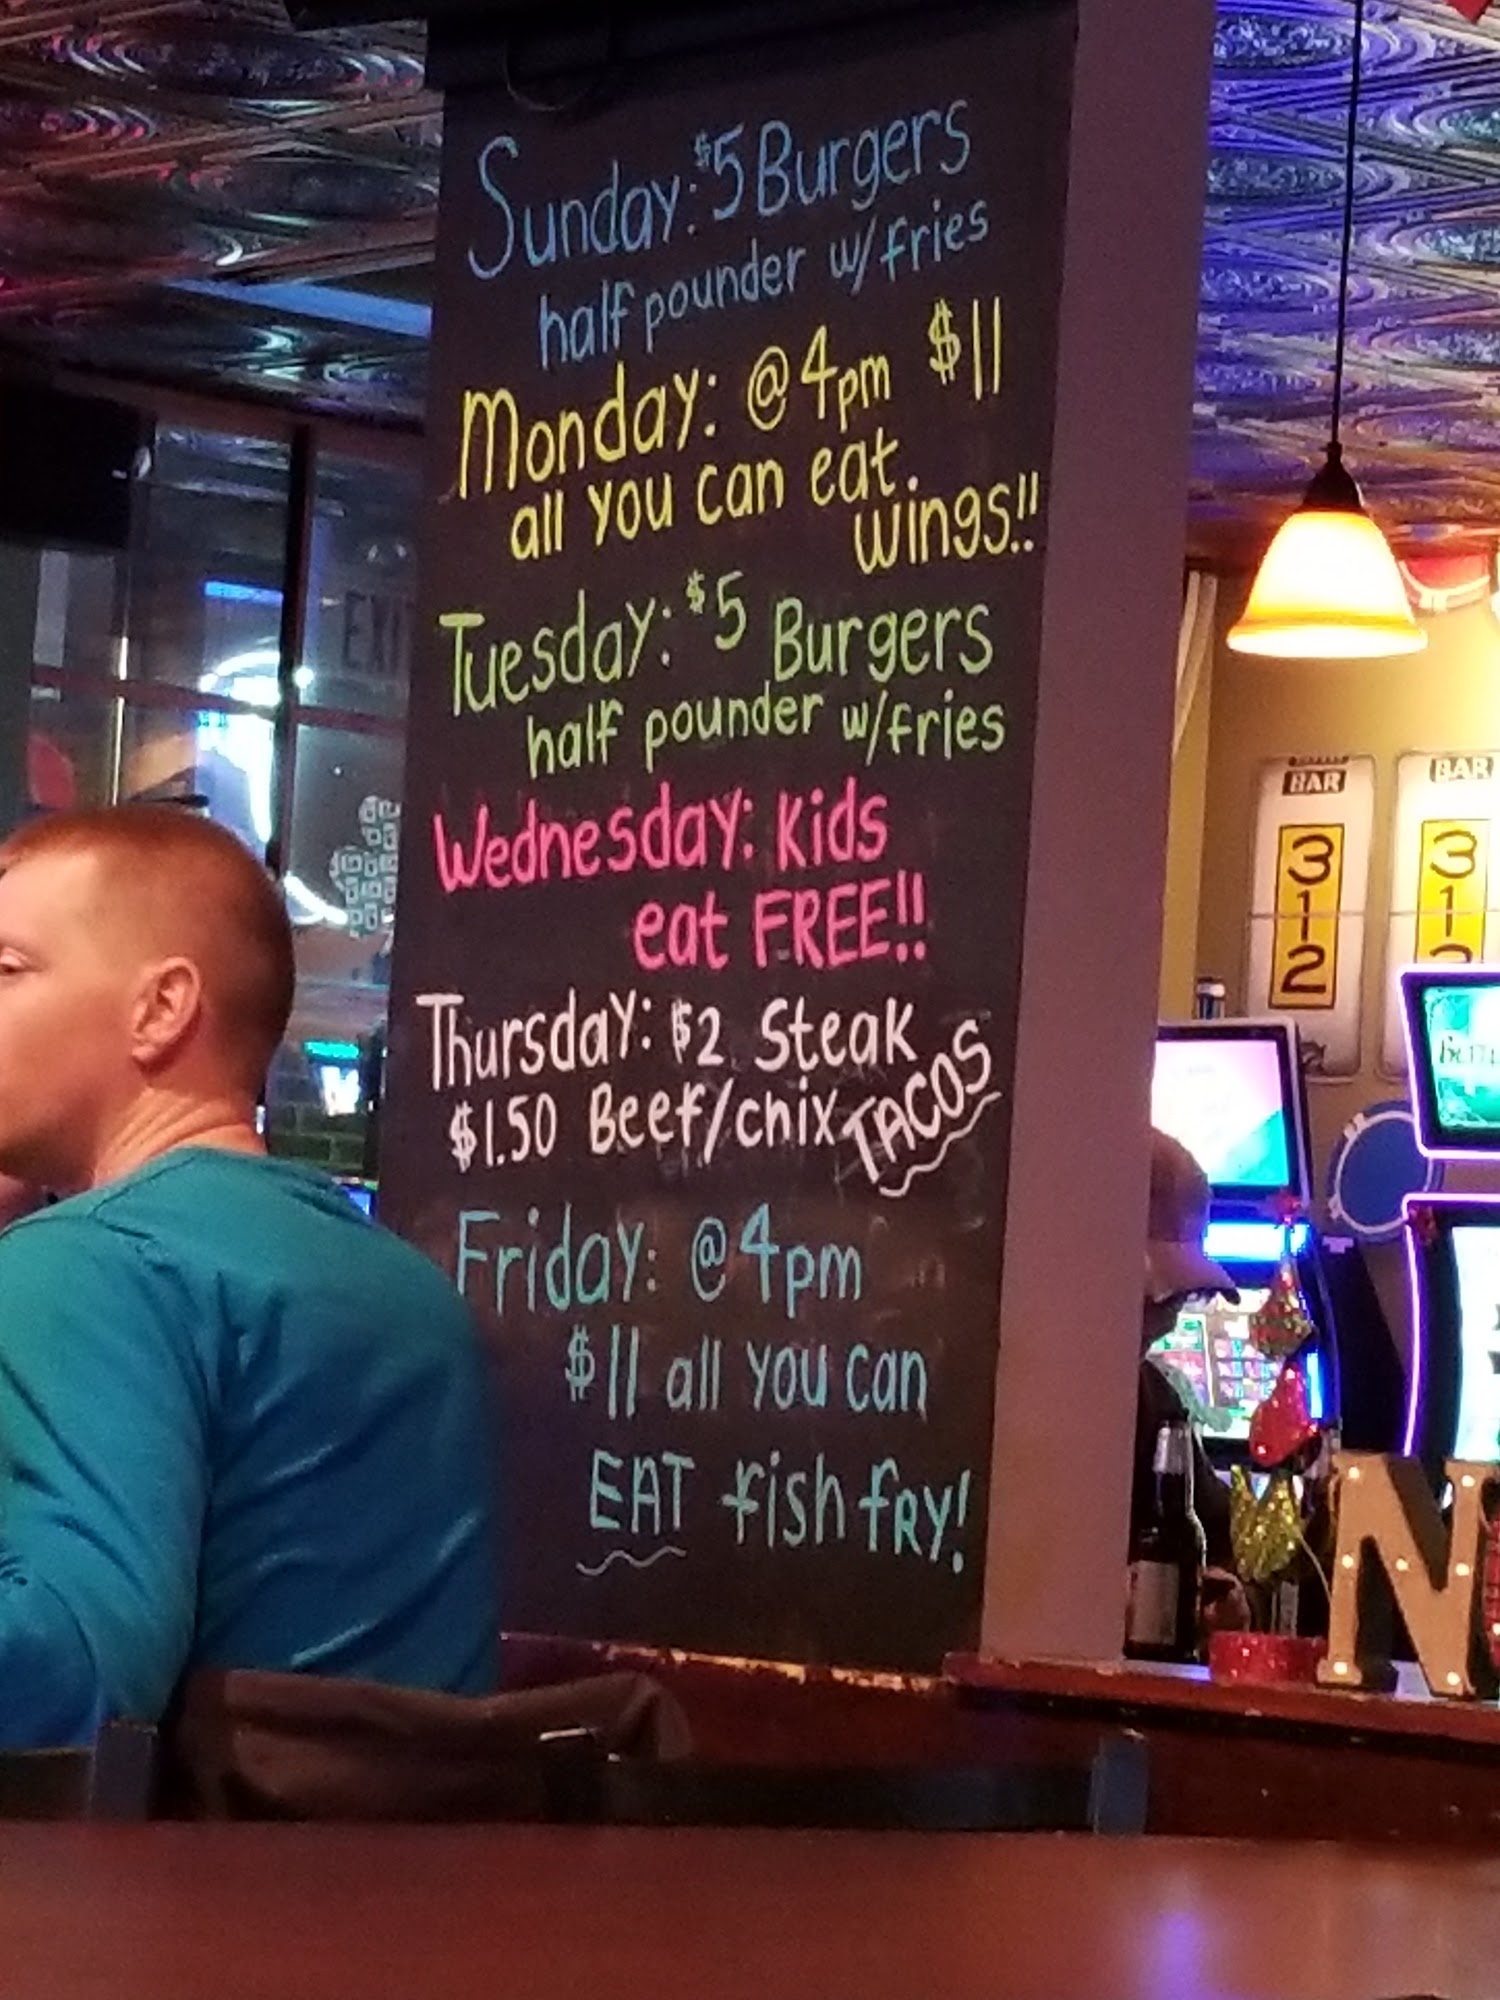 Sunday: $5 Burgers
half pounder w/fries
Monday: @4pm $11
all you can eat.
wings!!
Tuesday: $5 Burgers
half pounder w/fries
Wednesday: Kids
eat FREE!!
Thursday: $2 Steak
$1.50 Beef/chix TACOS
Friday: @4pm
$11 all you can
EAT fish fRY!
EXI
BAR
312
BAR
312
N